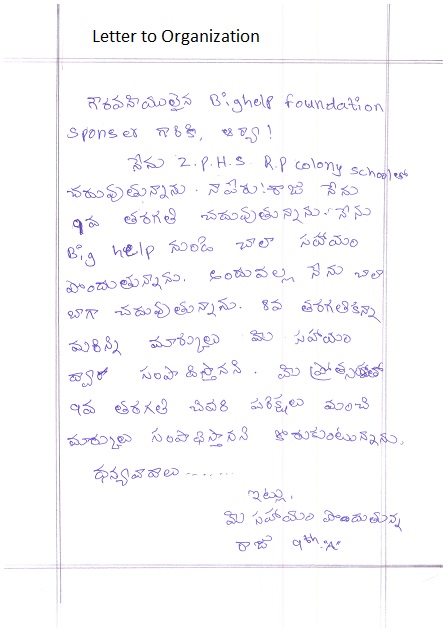 Letter to Organization
గౌరవనీయులైన Bighelp foundation
sponser గారికి, ఆర్యా!
నేను Z.P.H.S. R.P colony schoolలో
చదువుతున్నాను. నాపేరు: రాజు నేను
9వ తరగతి చదువుతున్నాను. నేను
Big help నుండి చాలా సహాయం
పొందుతున్నాను. అందువల్ల నేను చాలా
బాగా చదువుతున్నాను. 8వ తరగతికన్నా
మరిన్ని మార్కులు మీ సహాయం
ద్వారా సంపాదిస్తానని. మీ ప్రోత్సహంతో
9వ తరగతి చివరి పరీక్షలు మంచి
మార్కులు సంపాధిస్తానని కోరుకుంటున్నాను.
ధన్యవాదాలు .......
ఇట్లు,
మీ సహాయం పొందుతున్న
రాజు 9th "A"